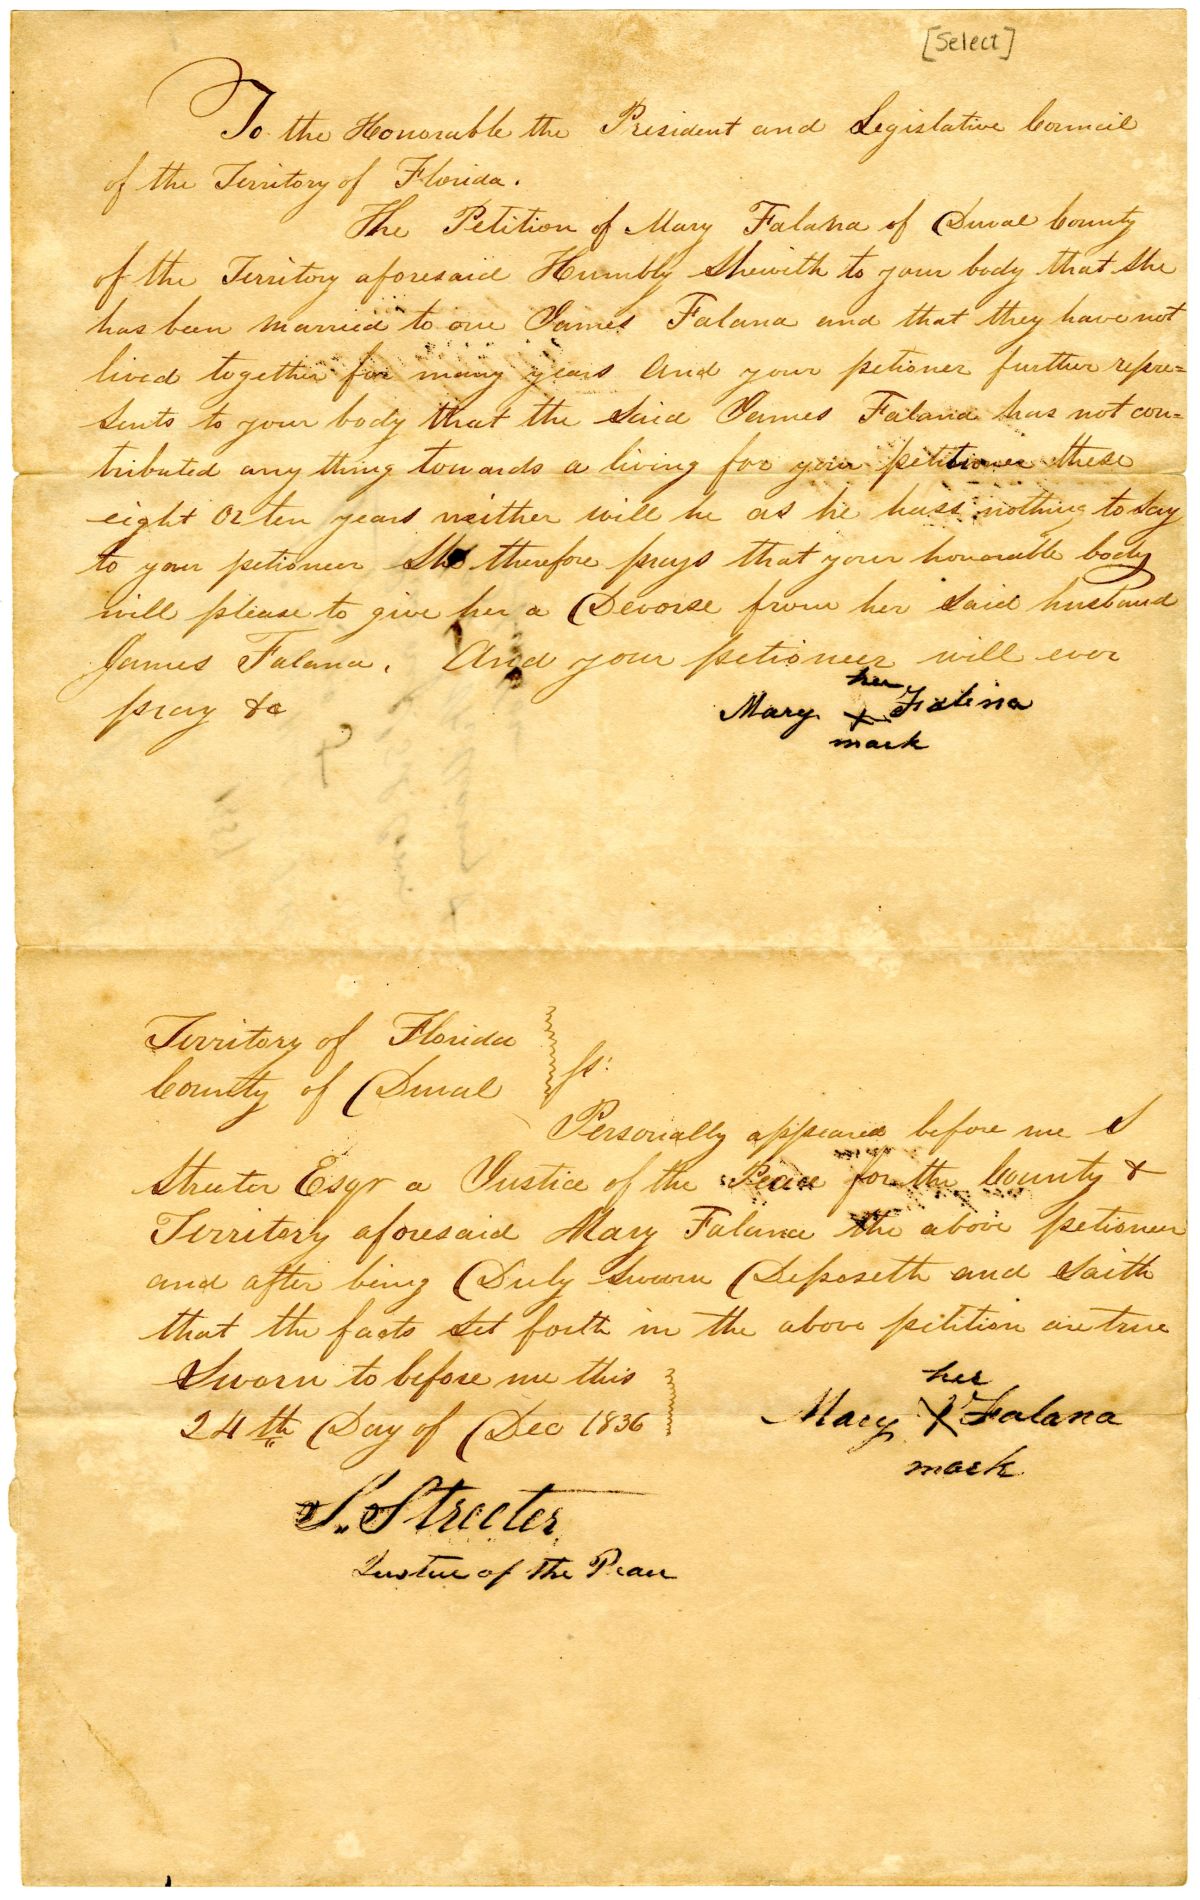 [Select]
To the Honorable the President and Legislative Council
of the Territory of Florida.
The Petition of Mary Falana of Duval County
of the Territory aforesaid Humbly Shewith to your body that She
has been married to one James Falana and that they have not
lived together for many years And your petioner further repre=
sents to your body that the Said James Falana has not con=
tributed any thing towards a living for your petitioner these
eight or ten years neither will he as he hass nothing to say
to your petioneer She therefore prays that your honorable body
will please to give her a Devorse from her Said husband
James Falana. And your petioneer will ever
pray &c
her
Mary X Falina
mark
Territory of Florida
County of Duval } Ss:
Personally appeared before me S
Streeter Esqr a Justice of the Peace for the County &
Territory aforesaid Mary Falana the above petioneer
and after being Duly Sworn Deposeth and Saith
that the facts Set forth in the above petition are true
Sworn to before me this
24th Day of Dec 1836
her
Mary X Falana
mark
S. Streeter
Justice of the Peace